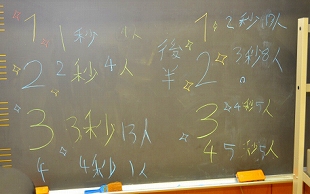 1 1秒 人
2 2秒4人
3 3秒13人
4 4秒1人
後半
1 2秒 人
2 3秒8人
3 4秒5人
4 5秒5人